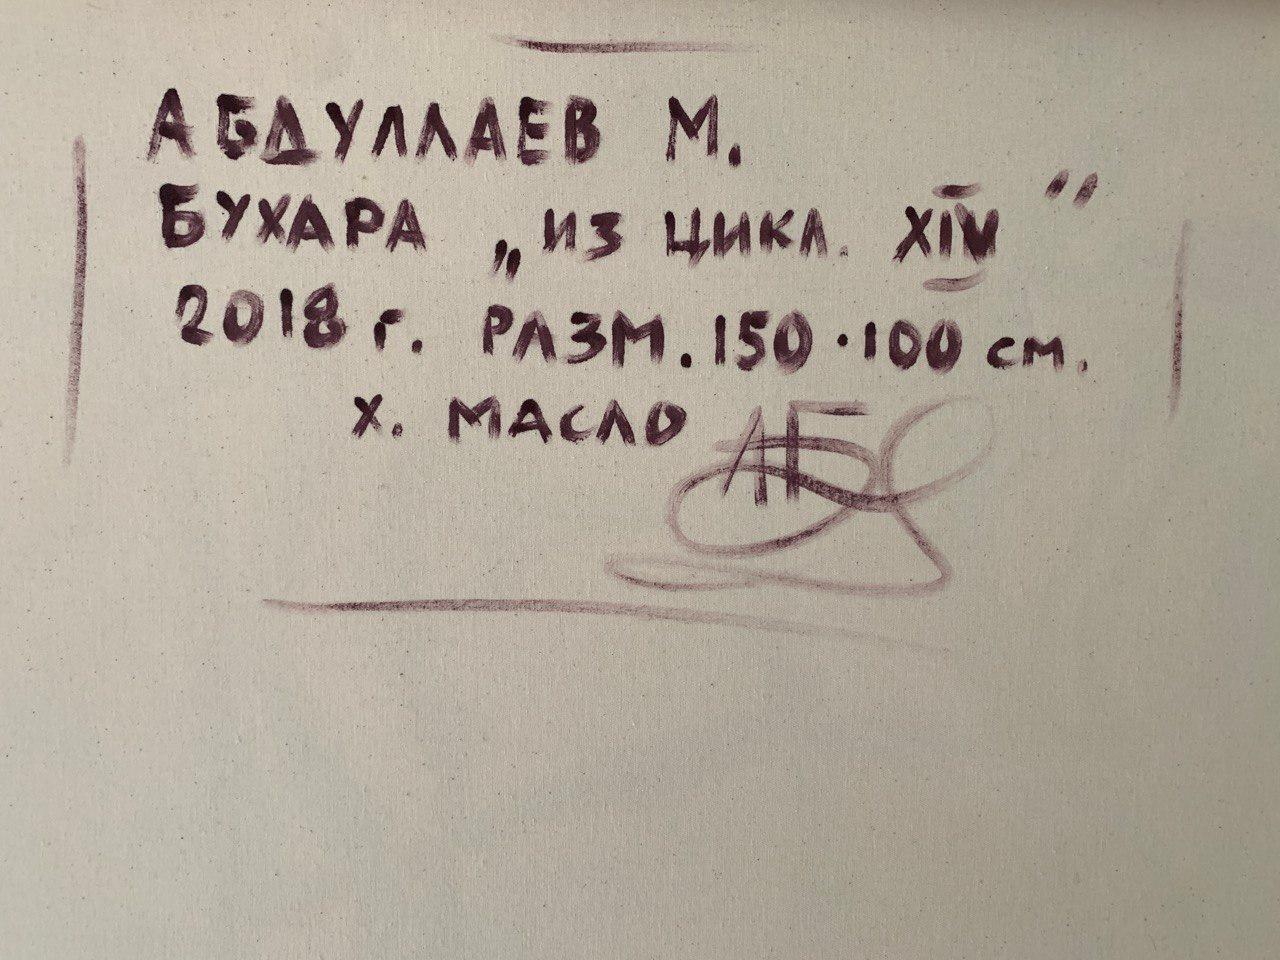 АБДУЛЛАЕВ М.
БУХАРА „ИЗ ЦИКЛ. XIV”
2018 г. РАЗМ. 150·100 см.
х. МАСЛО АБ